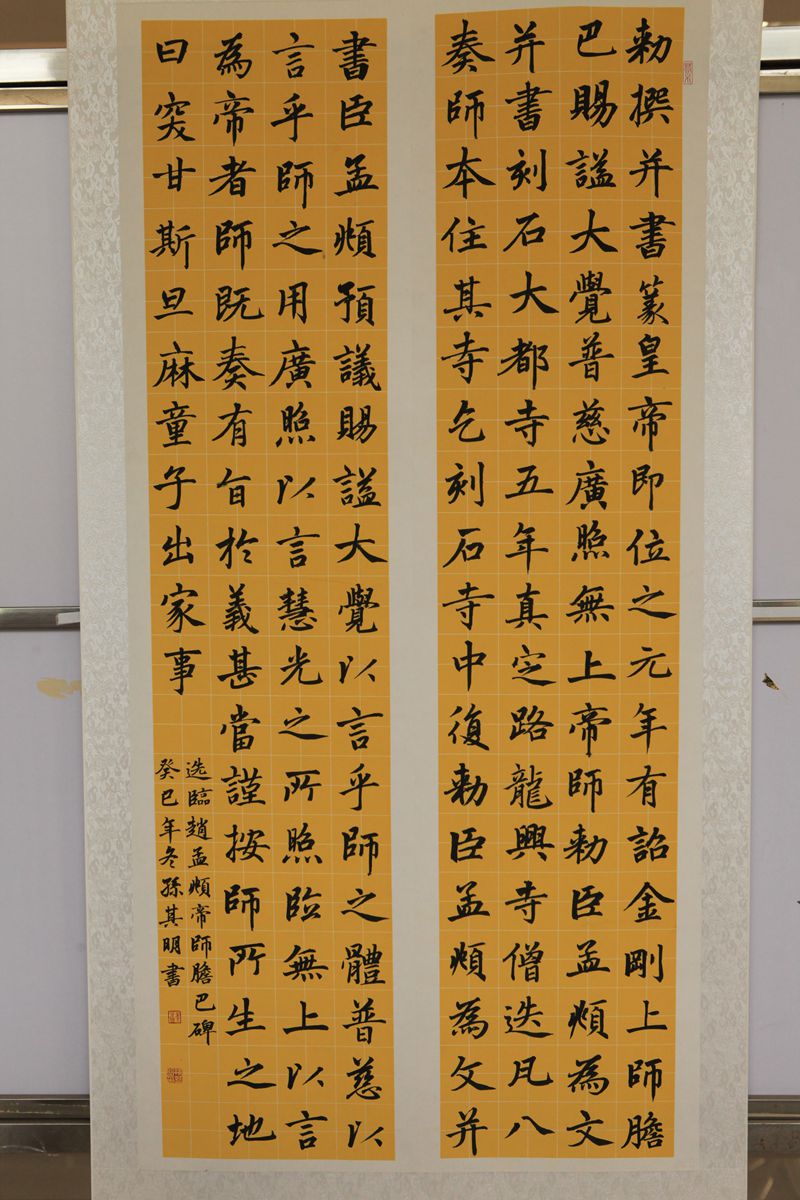 勅撰并書篆皇帝即位之元年有詔金剛上師膽
巴賜謚大覺普慈廣照無上帝師勅臣孟頫為文
并書刻石大都寺五年真定路龍興寺僧迭凡八
奏師本住其寺乞刻石寺中復勅臣孟頫為文并
書臣孟頫預議賜謚大覺以言乎師之體普慈以
言乎師之用廣照以言慧光之所照臨無上以言
為帝者師既奏有旨於義甚當謹按師所生之地
曰突甘斯旦麻童子出家事
选臨趙孟頫帝師膽巴碑
癸巳年冬孫其明書